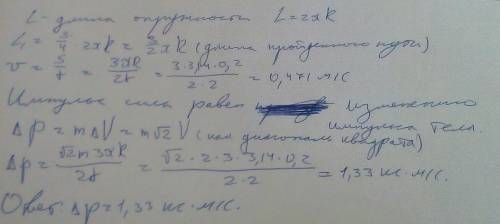 L - длина окружности L = 2πR
L₁ = 3/4 · 2πR = 3/2 πR (длина пройденного пути)
v = S/t = 3πR/2t = 3·3,14·0,2/2·2 = 0,471 м/с
Импульс силы равен изменению
импульса тела.
Δp = mΔV = m√2 V (как диагональ квадрата)
Δp = √2 m 3πR/2t = √2·2·3·3,14·0,2/2·2 = 1,33 кг·м/с.
Ответ: Δp = 1,33 кг·м/с.